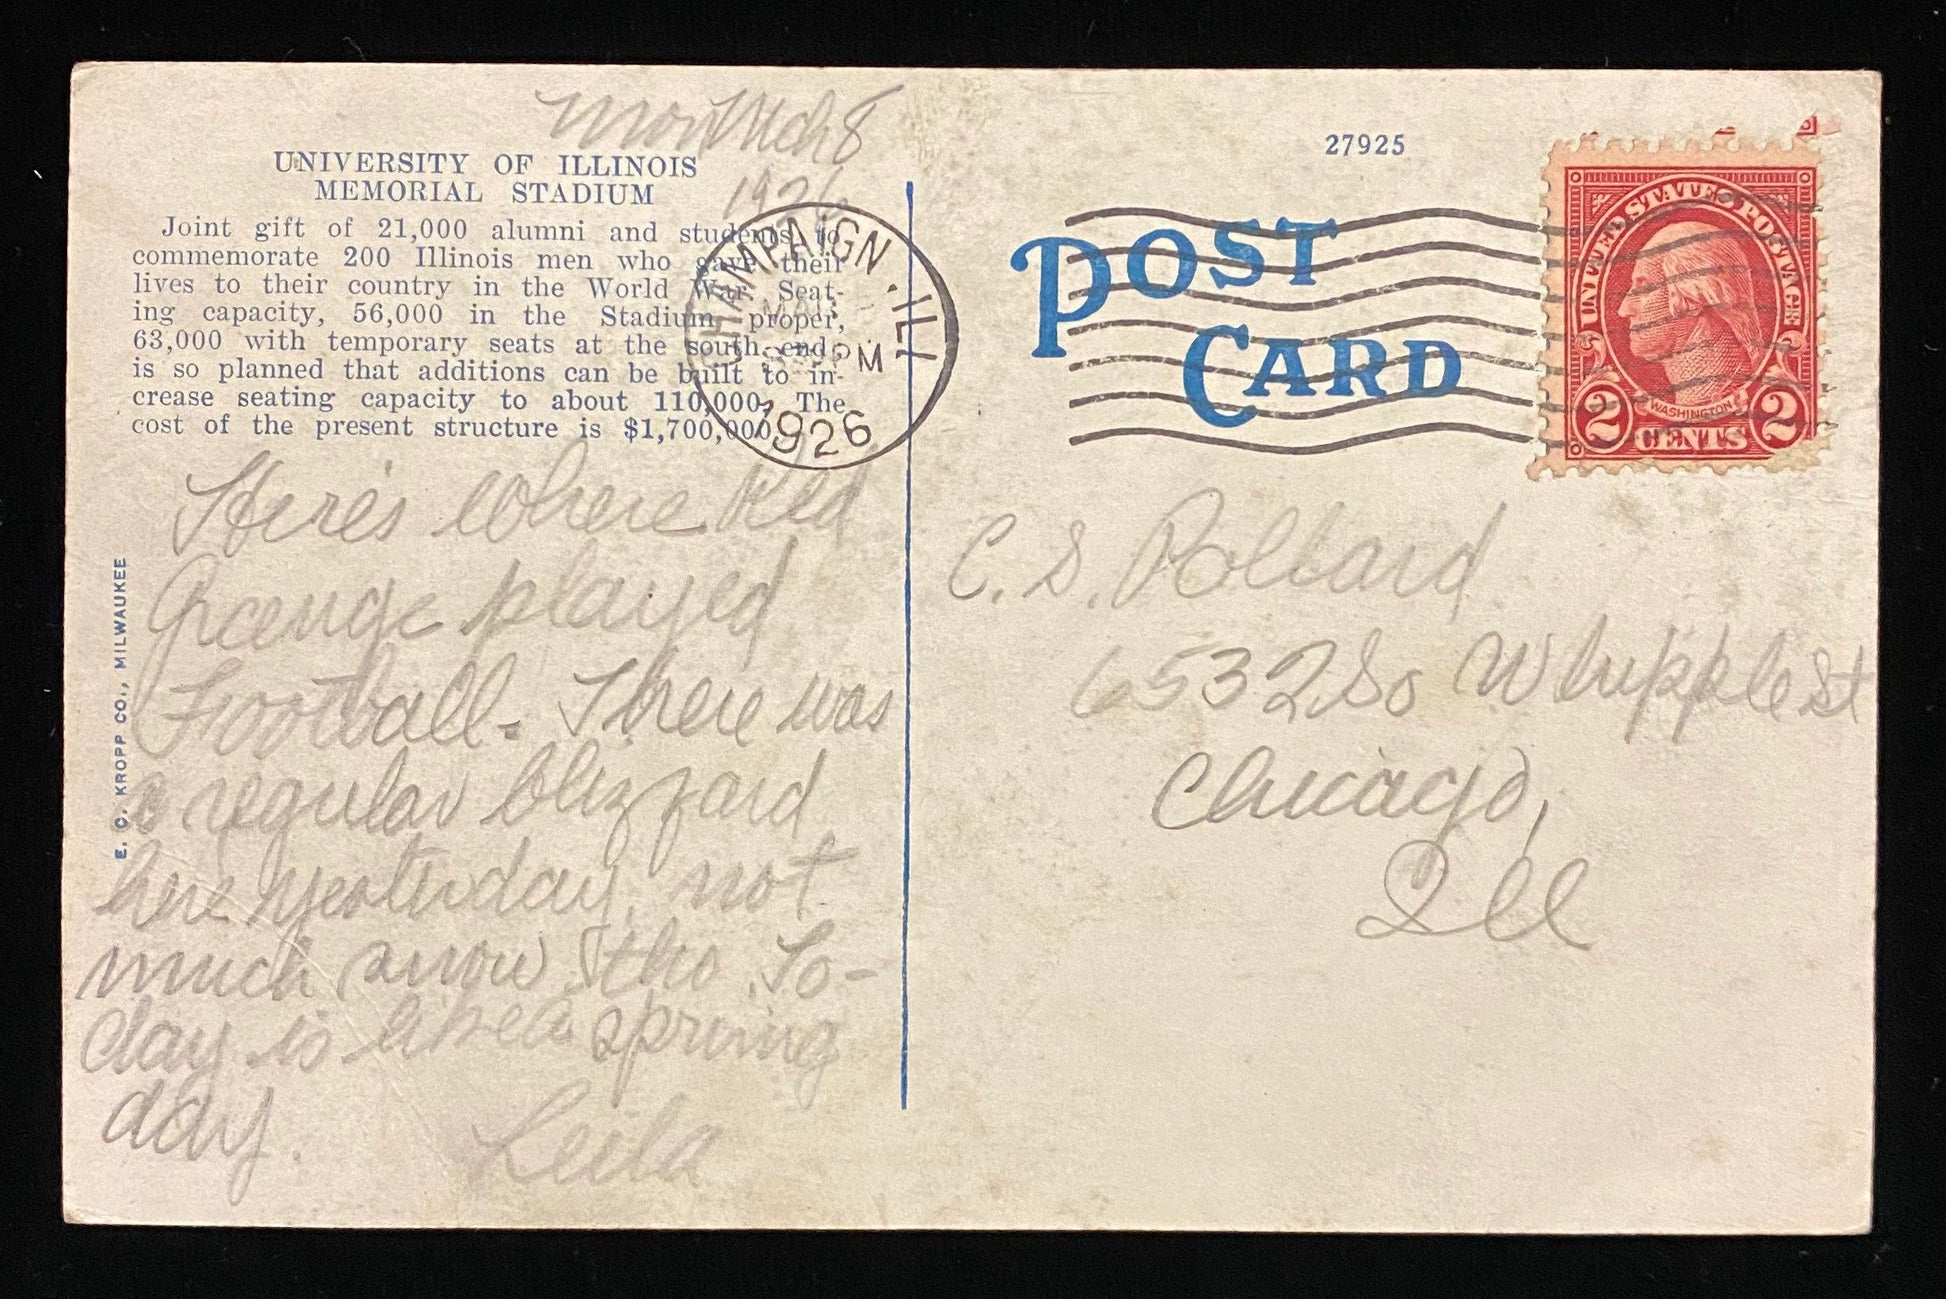 Mon Mch 8
1926
UNIVERSITY OF ILLINOIS
MEMORIAL STADIUM
Joint gift of 21,000 alumni and students to
commemorate 200 Illinois men who gave their
lives to their country in the World War. Seat-
ing capacity, 56,000 in the Stadium proper,
63,000 with temporary seats at the south end;
is so planned that additions can be built to in-
crease seating capacity to about 110,000. The
cost of the present structure is $1,700,000.
CHAMPAIGN, ILL.
MAR
PM
1926
Here's where Red
Grange played
Football. There was
a regular blizzard
here yesterday, not
much snow tho. To-
day is like a spring
day.
Leila
E. C. KROPP CO., MILWAUKEE
27925
POST
CARD
UNITED STATES POSTAGE
WASHINGTON
2 CENTS 2
C. S. Pollard
6532 So Whipple St
Chicago,
Ill